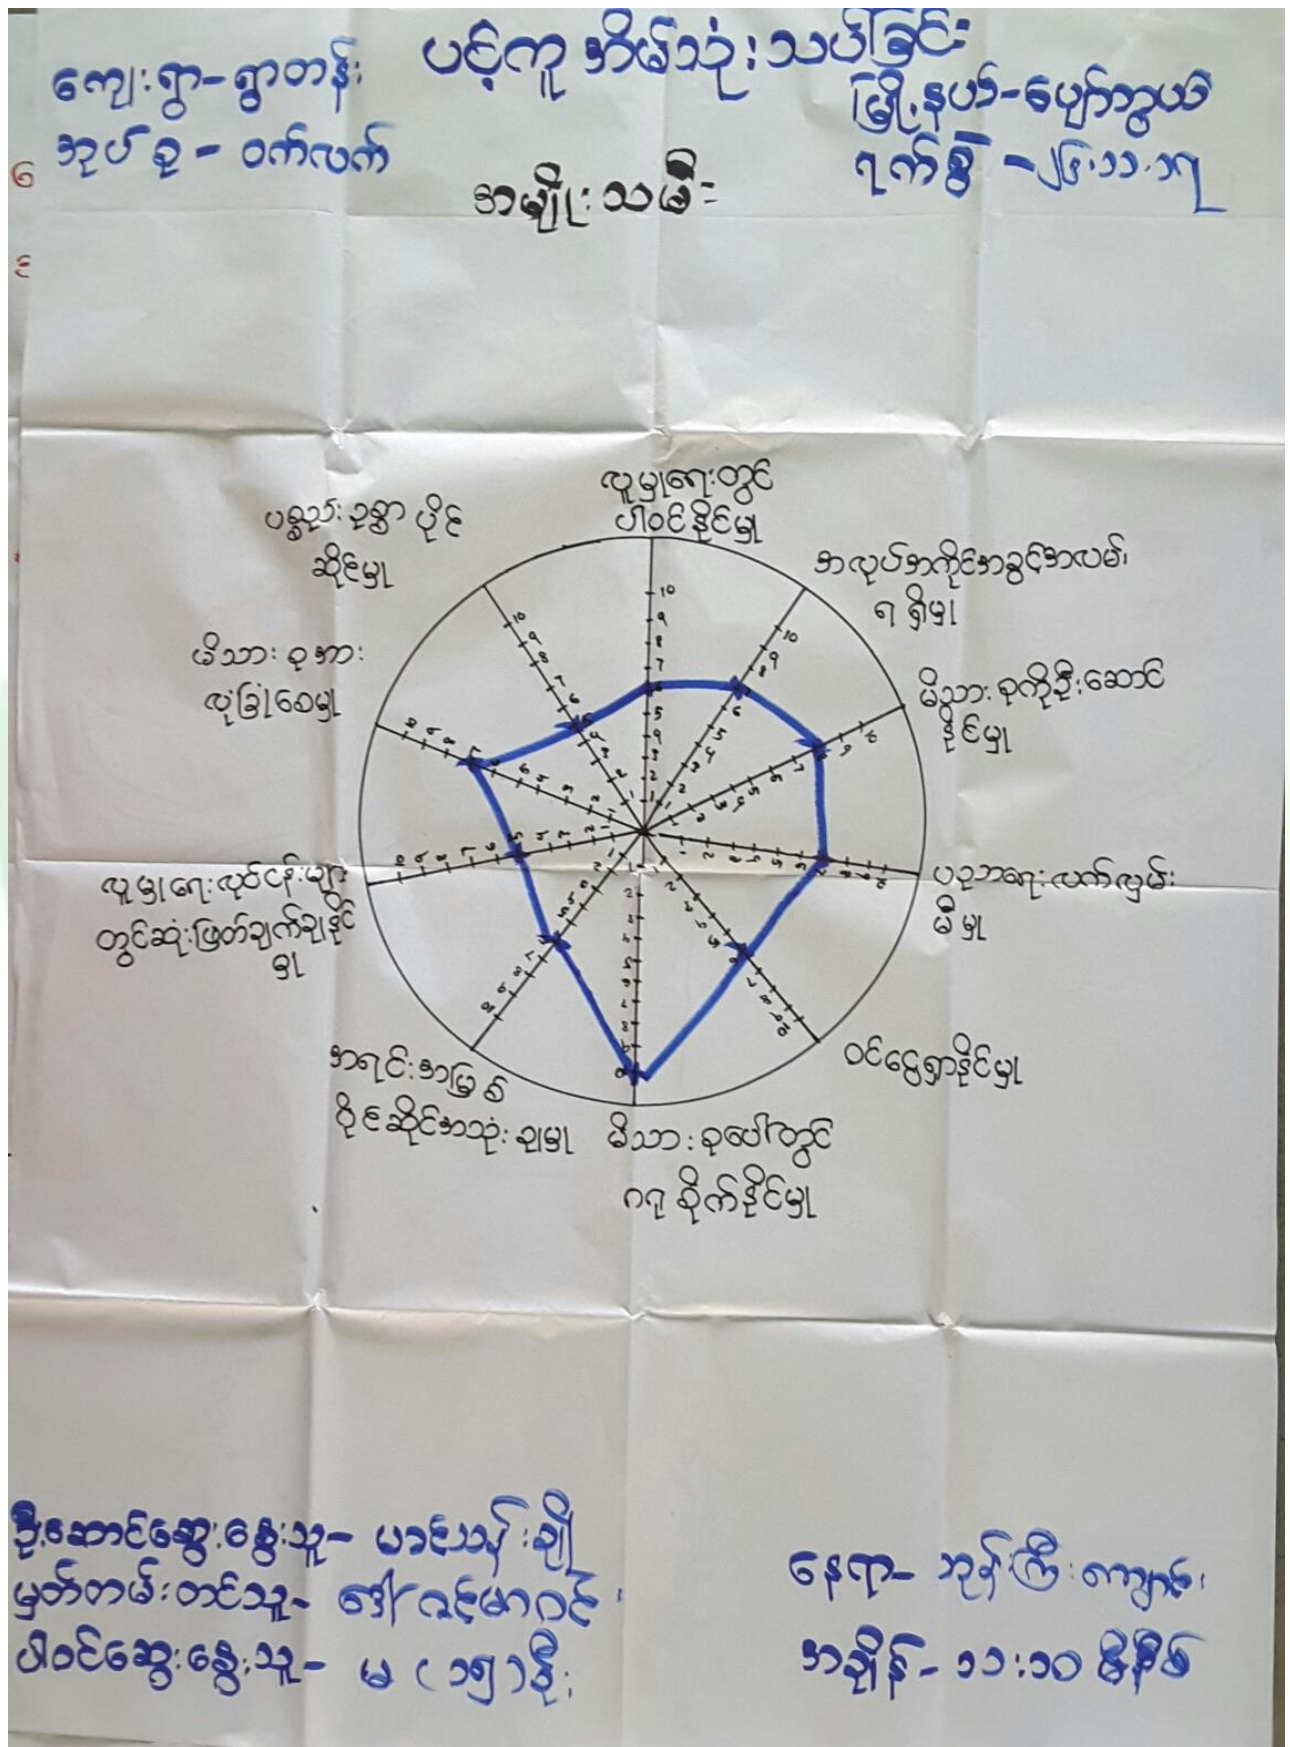 ပင့်ကူအိမ်သုံးသပ်ခြင်း
ကျေးရွာ-ရွာတန်း
အုပ်စု - ဝက်လက်
မြို့နယ်-ပျော်ဘွယ်
ရက်စွဲ - ၂၄.၁၁.၁၇
အမျိုးသမီး
လူမှုရေးတွင်
ပါဝင်နိုင်မှု
အလုပ်အကိုင်အခွင့်အလမ်း
ရရှိမှု
မိသားစုကိုဦးဆောင်
နိုင်မှု
ပညာရေးလက်လှမ်း
မီမှု
ဝင်ငွေရှာနိုင်မှု
မိသားစုပေါ်တွင်
ဂရုစိုက်နိုင်မှု
အရင်းအမြစ်
ပိုင်ဆိုင်အသုံးချမှု
လူမှုရေးလုပ်ငန်းများ
တွင်ဆုံးဖြတ်ချက်ချနိုင်
မှု
မိသားစုအား
လုံခြုံစေမှု
ပစ္စည်းဥစ္စာပိုင်
ဆိုင်မှု
ဦးဆောင်ဆွေးနွေးသူ-
မှတ်တမ်းတင်သူ- ဒေါ်ဇင်မာဝင်း
ပါဝင်ဆွေးနွေးသူ- မ (၁၅) ဦး
နေရာ- ဘုန်းကြီးကျောင်း
အချိန်- ၁၁:၁၀ မိနစ်